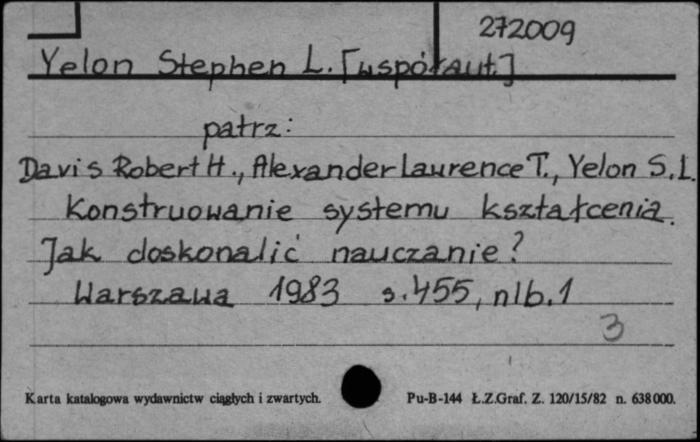 272009
Yelon Stephen L. [współaut.]
patrz:
Davis Robert H., Alexander Laurence T., Yelon S.L.
Konstruowanie systemu kształcenia.
Jak doskonalić nauczanie?
Warszawa 1983 s.455, nlb.1
3
Karta katalogowa wydawnictw ciągłych i zwartych. Pu-B-144 Ł.Z.Graf. Z. 120/15/82 n. 638000.